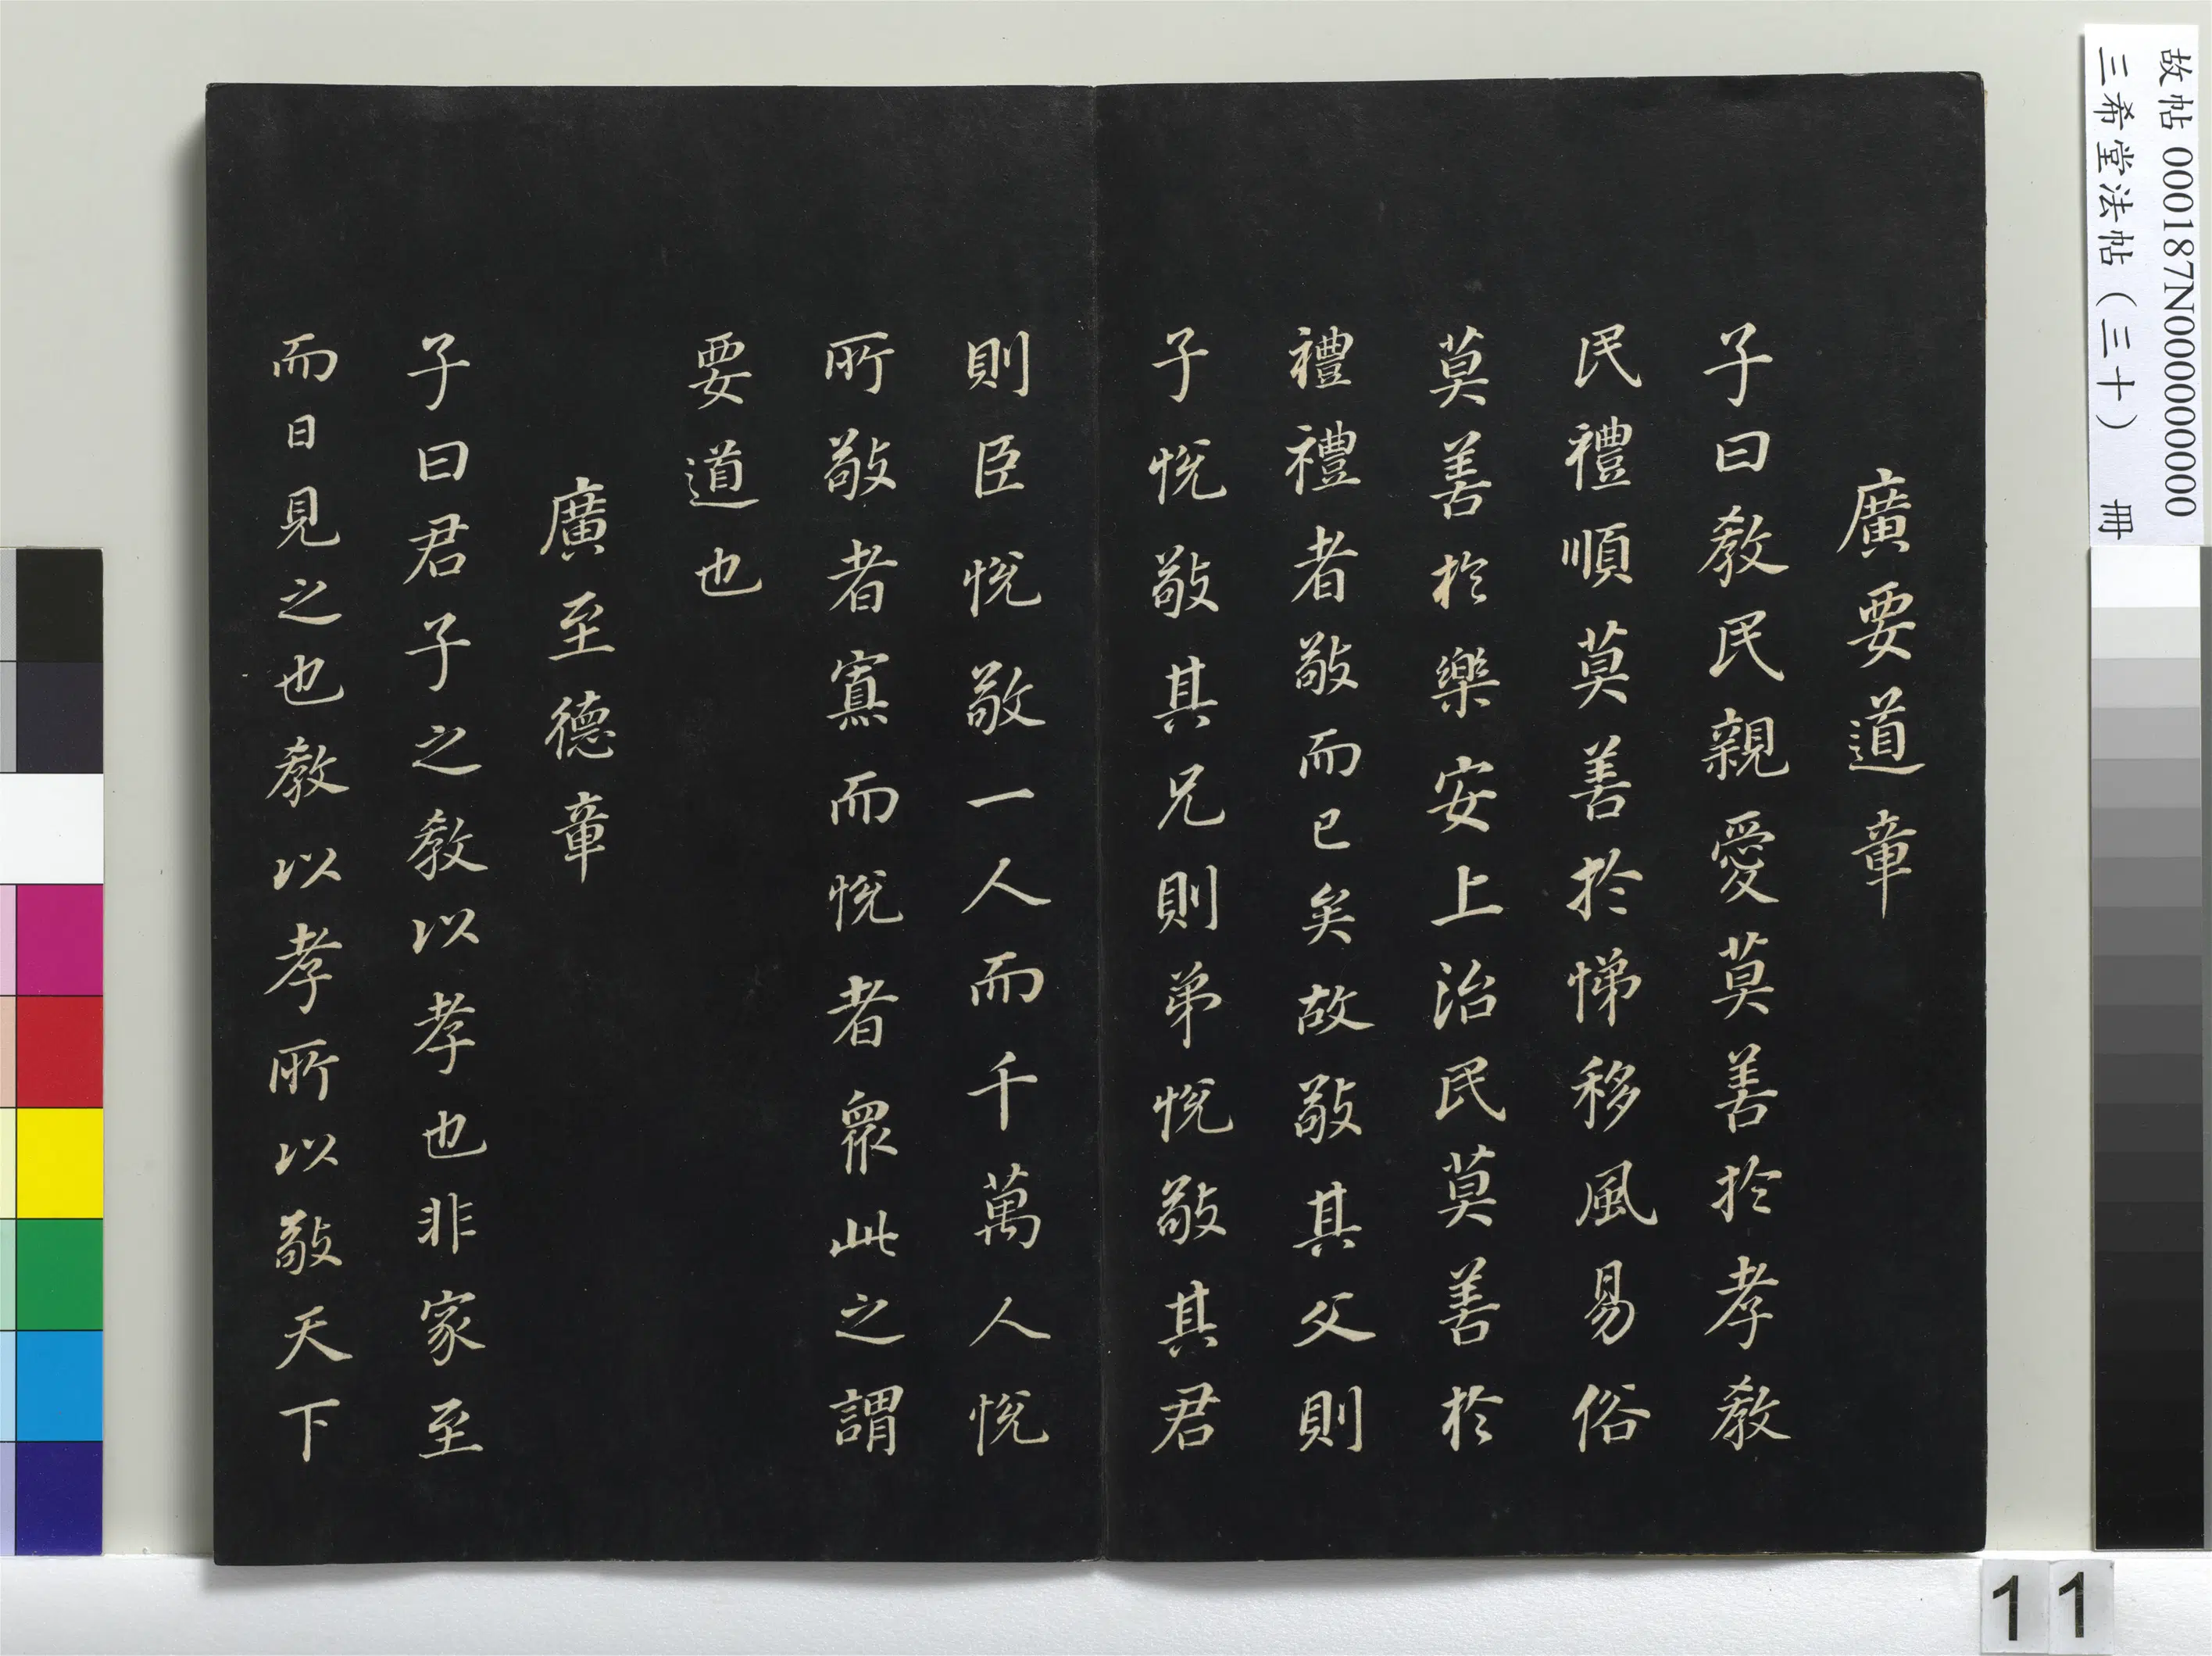 故帖 000187N000000000
三希堂法帖（三十） 冊
廣要道章
子曰教民親愛莫善於孝教
民禮順莫善於悌移風易俗
莫善於樂安上治民莫善於
禮禮者敬而已矣故敬其父則
子悅敬其兄則弟悅敬其君
則臣悅敬一人而千萬人悅
所敬者寡而悅者眾此之謂
要道也
廣至德章
子曰君子之教以孝也非家至
而日見之也教以孝所以敬天下
11